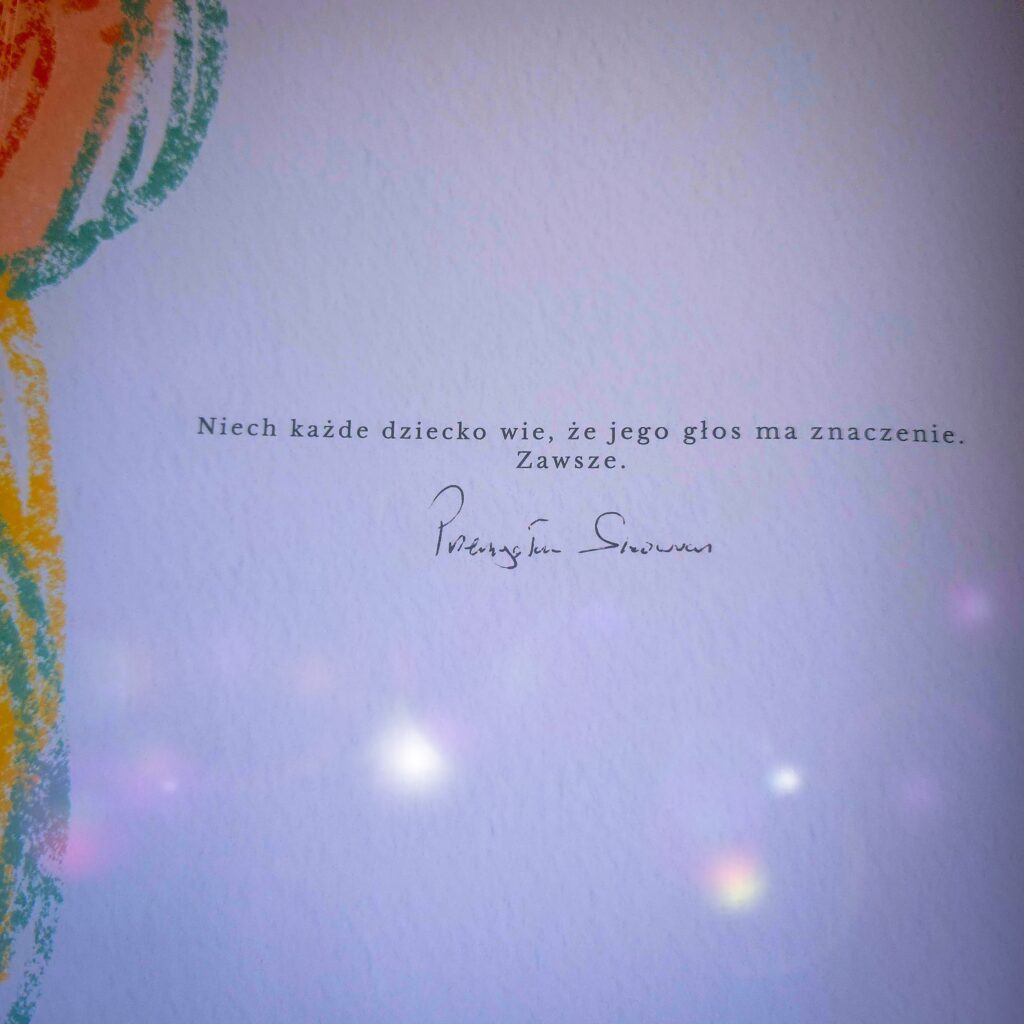 Niech każde dziecko wie, że jego głos ma znaczenie.
Zawsze.